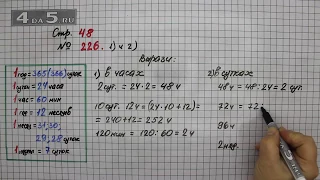 4DA5.RU
Стр. 48
№ 226. 1) и 2)
Вырази:
1 год = 365 (366) суток
1 сутки = 24 часа
1 час = 60 мин
1 год = 12 месяцев
1 месяц = 31, 30,
29, 28 суток
1 неделя = 7 суток
1) В часах
2 сут. = 24 · 2 = 48 ч
10 сут. 12 ч = (24 · 10 + 12) =
= 240 + 12 = 252 ч
120 мин = 120 : 60 = 2 ч
2) В сутках
48 ч = 48 : 24 = 2 сут.
72 ч = 72
96 ч
2 нед.